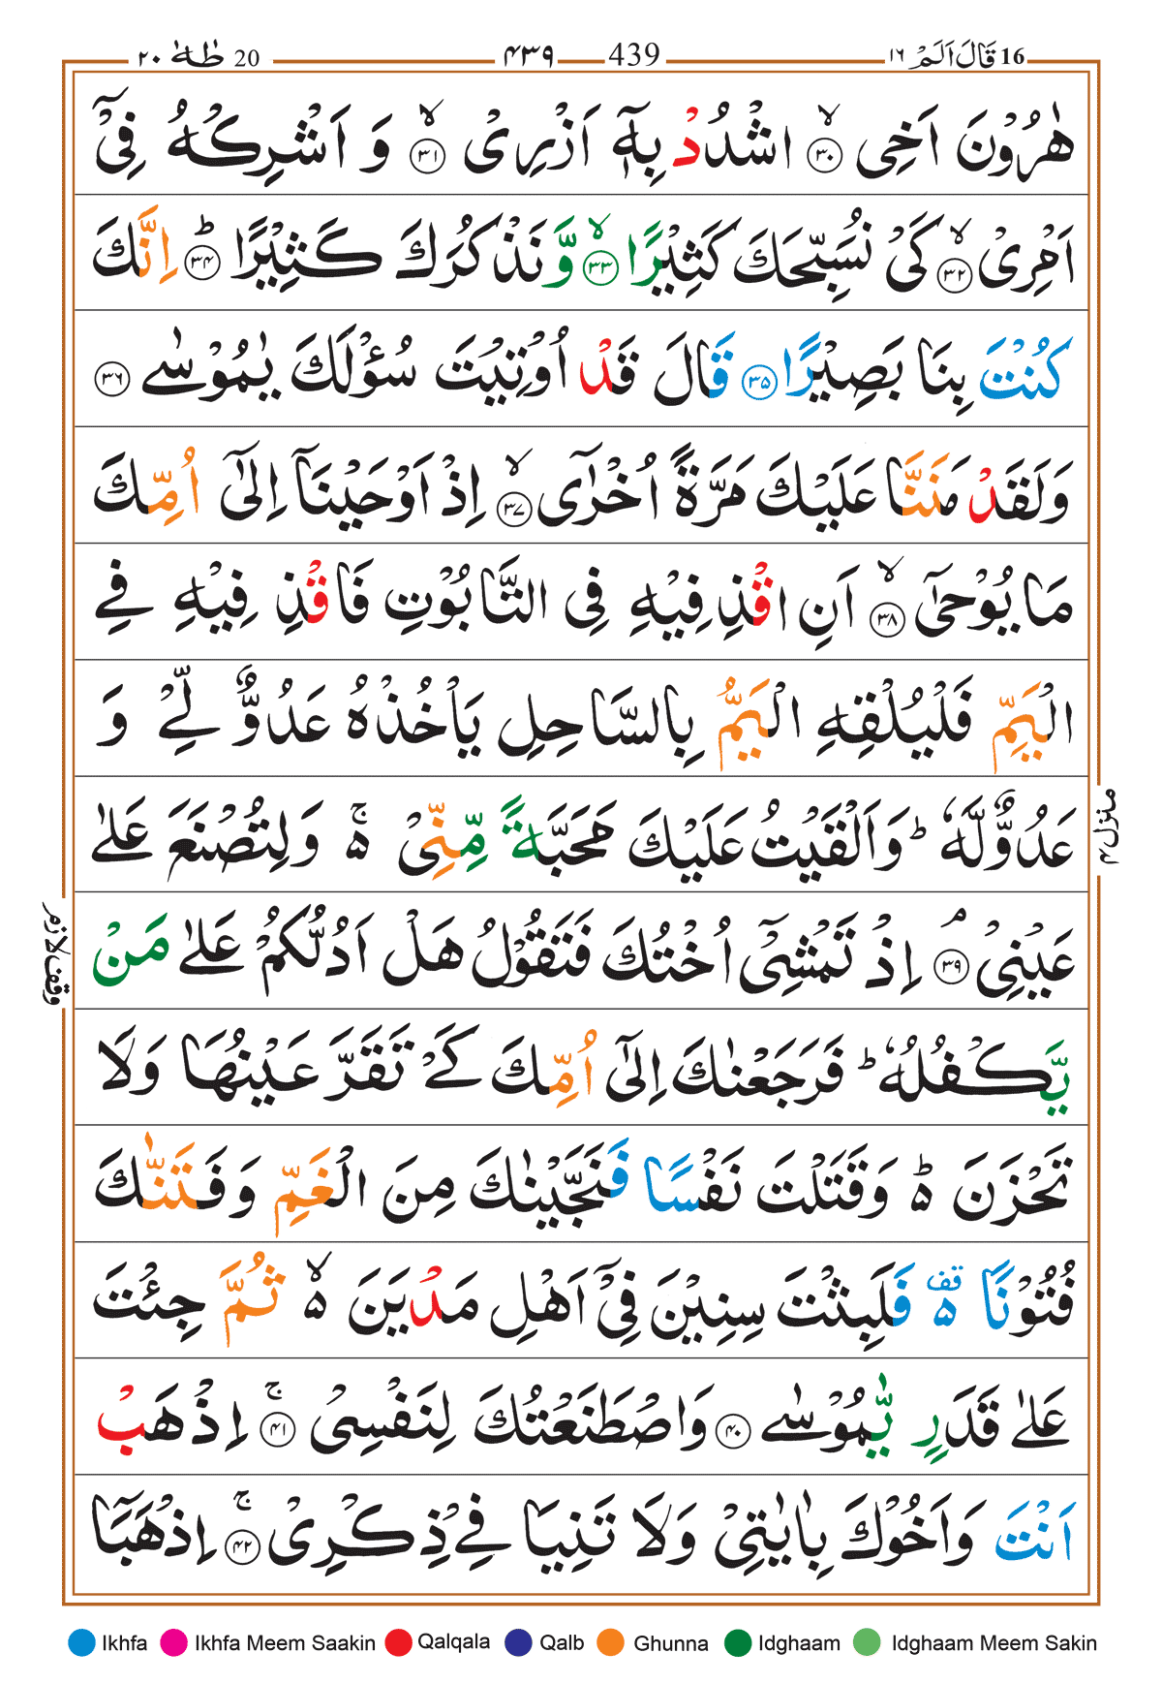 طٰهٰ ٢٠ 20 439 ٤٣٩ 16 قَالَ اَلَمْ ١٦
هٰرُوْنَ اَخِى ۙ‏﴿۳۰﴾ اشْدُدْ بِهٖۤ اَزْرِىْ ۙ‏﴿۳۱﴾ وَ اَشْرِكْهُ فِىْۤ
اَمْرِىْ ۙ‏﴿۳۲﴾ كَىْ نُسَبِّحَكَ كَثِيْرًا ۙ‏﴿۳۳﴾ وَّنَذْكُرَكَ كَثِيْرًا ؕ‏﴿۳۴﴾ اِنَّكَ
كُنْتَ بِنَا بَصِيْرًا‏ ﴿۳۵﴾ قَالَ قَدْ اُوْتِيْتَ سُؤْلَكَ يٰمُوْسٰى‏ ﴿۳۶﴾
وَلَقَدْ مَنَنَّا عَلَيْكَ مَرَّةً اُخْرٰٓى ۙ‏﴿۳۷﴾ اِذْ اَوْحَيْنَاۤ اِلٰٓى اُمِّكَ
مَا يُوْحٰٓى ۙ‏﴿۳۸﴾ اَنِ اقْذِفِيْهِ فِى التَّابُوْتِ فَاقْذِفِيْهِ فِى
الْيَمِّ فَلْيُلْقِهِ الْيَمُّ بِالسَّاحِلِ يَاْخُذْهُ عَدُوٌّ لِّىْ وَ
عَدُوٌّ لَّهٗ ؕ وَاَلْقَيْتُ عَلَيْكَ مَحَبَّةً مِّنِّىْ ۚ۬ وَلِتُصْنَعَ عَلٰى
عَيْنِىْ ۘ‏﴿۳۹﴾ اِذْ تَمْشِىْۤ اُخْتُكَ فَتَقُوْلُ هَلْ اَدُلُّكُمْ عَلٰى مَنْ
يَّكْفُلُهٗ ؕ فَرَجَعْنٰكَ اِلٰٓى اُمِّكَ كَىْ تَقَرَّ عَيْنُهَا وَلَا
تَحْزَنَ ؕ۬ وَقَتَلْتَ نَفْسًا فَنَجَّيْنٰكَ مِنَ الْغَمِّ وَفَتَنّٰكَ
فُتُوْنًا ۥ۬ قف فَلَبِثْتَ سِنِيْنَ فِىْۤ اَهْلِ مَدْيَنَ ۙ۬ ثُمَّ جِئْتَ
عَلٰى قَدَرٍ يّٰمُوْسٰى‏ ﴿۴۰﴾ وَاصْطَنَعْتُكَ لِنَفْسِىْ ۚ‏﴿۴۱﴾ اِذْهَبْ
اَنْتَ وَاَخُوْكَ بِاٰيٰتِىْ وَلَا تَنِيَا فِىْ ذِكْرِىْ ۚ‏﴿۴۲﴾ اِذْهَبَاۤ
منزل ۴
وقف لازم
Ikhfa Ikhfa Meem Saakin Qalqala Qalb Ghunna Idghaam Idghaam Meem Sakin